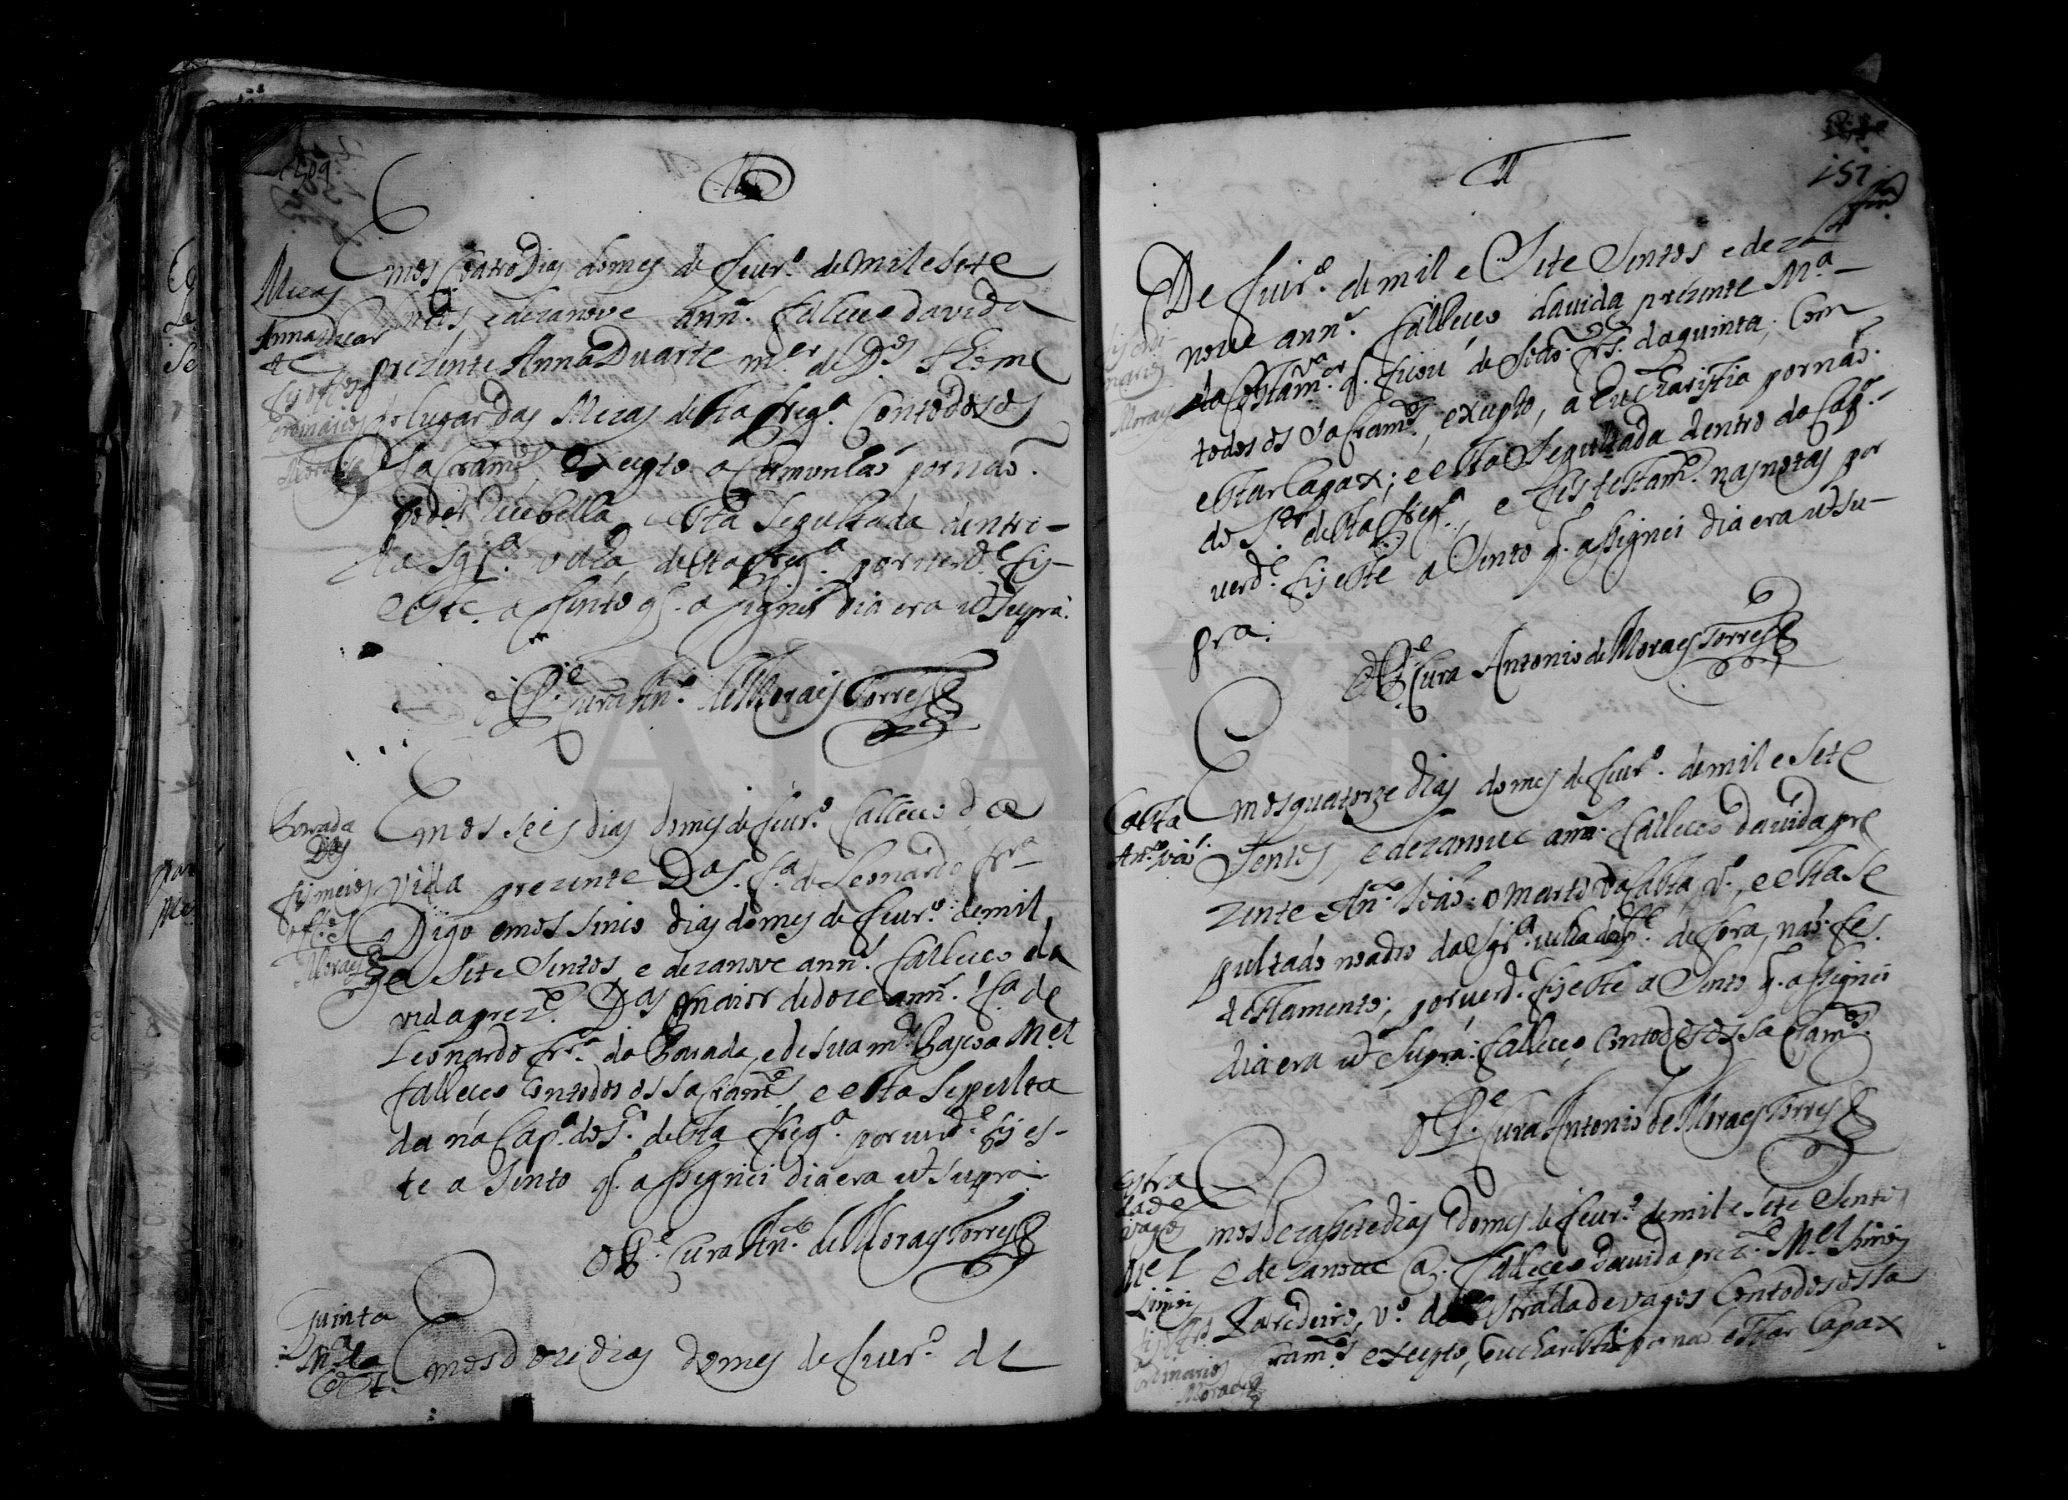 Mezas
Anna Duar
te
fis off.os
ordinarios
Moraes
Emos Coatro Dias do mes de feur.o de mil e sete
sintos, e dezanove ann.s faleceo da vida
prezente Anna Duarte m.er de D.os Thome
do lugar das Mezas desta freg.a Con todos os
Sacram.tos excepto a Comunhaõ por naõ
poder recebella, e esta Sepultada dentro
da Igr.a velha desta freg.a por verd.e fis
este aSento q. aSignei dia era ut Supra.
o P.e Cura An.to de Moraes Torres
Bovada
D.as
fis meios
off.os
Moraes
Emos seis dias do mes de feur.o falleceo da
vida prezente D.as f.a de Leonardo frr.a
Digo emos sinco dias do mes de feur.o de mil
e Sete Sintos, e dezanove ann.s falleceo da
vida prez.te D.as maior de doze ann.s f.a de
Leonardo frr.a da Bovada, e de sua m.er Bascoa M.el
falleceo Con todos os Sacram.tos, e esta Sepulta
da na Cap.a do S.r desta freg.a por verd.e fis es-
te aSento q. assignei dia era ut Supra
o P.e Cura An.to de Moraes Torres
Quinta
M.a da
Cost.
Emos doze dias do mes de feur.o de
151
De feur.o de mil e Sete Sintos e deza
nove ann.s falleceo da vida prezente M.a
da Costa m.er q. ficou de da quinta; Com
todos os Sacram.tos, exepto, a Eucharistia por naõ
estar Capax; e esta Sepultada dentro da Cap.a
do S.r desta freg.a, e fes testam.to nas notas por
verd.e fis este aSinto q. assignei dia era ut Su-
pra.
o P.e Cura Antonio de Moraes Torres
Calta
An.to Joaõ
Emos quatorze dias do mes de feur.o de mil e Sete
Sentos, e dezanove ann.s falleceo da vida pre
zente An.to Joaõ o marto da Calta, v.o, e esta Se
pultado no adro da Igr.a velha da p.te de fora, naõ fes
testamento; por verd.e fis este aSento q. assignei
dia era ut Supra: falleceo Con todos os Sacram.tos
o P.e Cura Antonio de Moraes Torres
Estra
da de
vagos
M.el
Simoi
ordinarios
Moraes
Emos dezassete dias do mes de feur.o de mil e Sete Sentos
e dezanove a. falleceo da vida prez.te M.el Simois
v.o da Estrada de vagos Con todos os Sa
cram.tos excepto, Eucharistia por naõ estar Capax